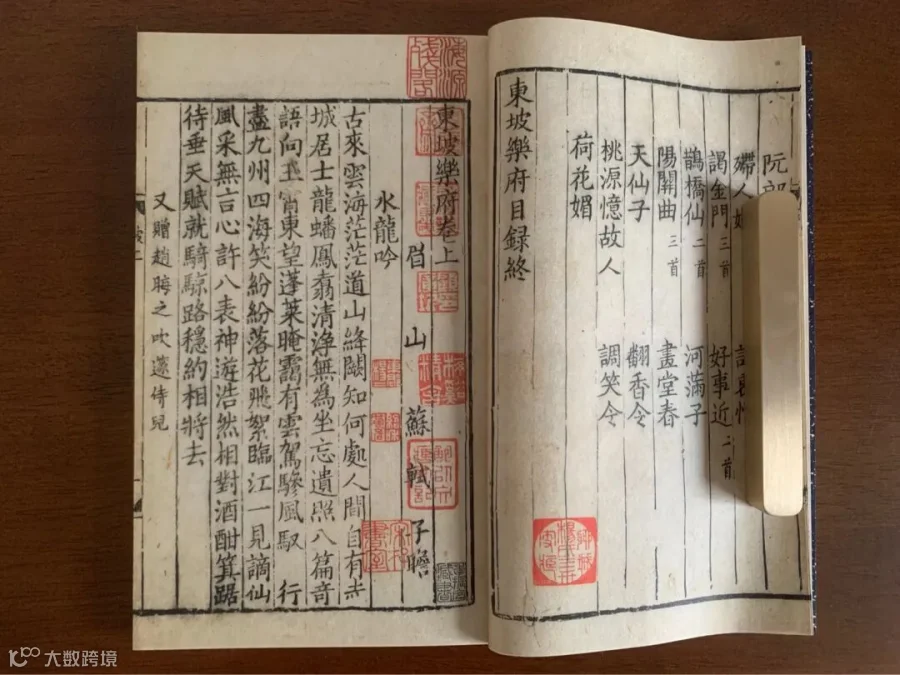 阮
人
謁金門 三首 好事近 二首
鵲橋仙 二首 河滿子
陽關曲 三首 畫堂春
天仙子 翻香令
桃源憶故人 調笑令
荷花媚
東坡樂府目録終
海源殘閣
東坡樂府卷上
眉山 蘇軾 子瞻
水龍吟
古來雲海茫茫道山絳闕知何處人間自有赤
城居士龍蟠鳳翥清淨無為坐忘遺照八篇奇
語向玉霄東望蓬萊晻靄有雲駕驂風馭 行
盡九州四海笑紛紛落花飛絮臨江一見謫仙
風采無言心許八表神遊浩然相對酒酣箕踞
待垂天賦就騎鯨路穩約相將去
又贈趙晦之吹篴侍兒
大数跨境